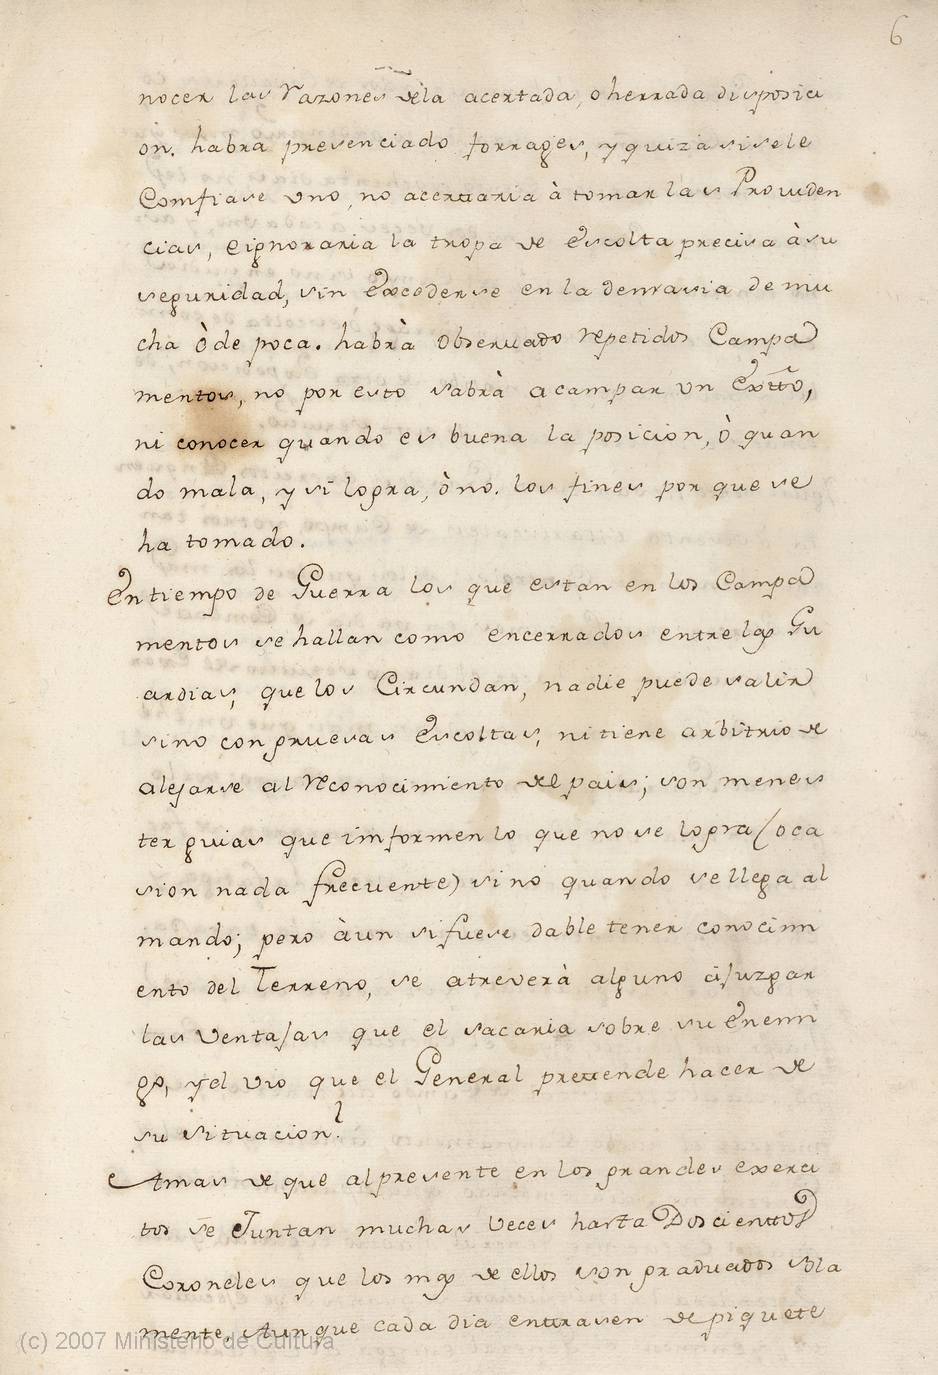 6
nocer las razones dela acertada, o herrada disposici
on. habra presenciado forrages, y quiza si sele
Comfiase uno, no acertaria à tomar las Providen
cias, e ignoraria la tropa de Escolta precisa à su
seguridad, sin Excederse en la demasia de mu
cha ò de poca. habrà observado repetidos Campa
mentos, no por esto sabrà acampar un Extto,
ni conocer quando es buena la posicion, ò quan
do mala, y si logra, ò no. los fines por que se
ha tomado.
En tiempo de Guerra los que estan en los Campa
mentos se hallan como encerrados entre las Gu
ardias, que los Circundan, nadie puede salir
sino con gruesas Escoltas, ni tiene arbitrio de
alejarse al reconocimiento del pais; son menes
ter guias que imformen lo que no se logra (oca
sion nada frecuente) sino quando se llega al
mando; pero àun si fuese dable tener conocimi
ento del Terreno, se atreverà alguno à juzgar
las ventajas que el sacaria sobre su Enemi
go, y el uso que el General pretende hacer de
su situacion?
Amas de que al presente en los grandes exerci
tos se Juntan muchas veces hasta Doscienttos
Coroneles que los mas de ellos son graduados sola
mente. Aun que cada dia entrasen de piquete
(c) 2007 Ministerio de Cultura